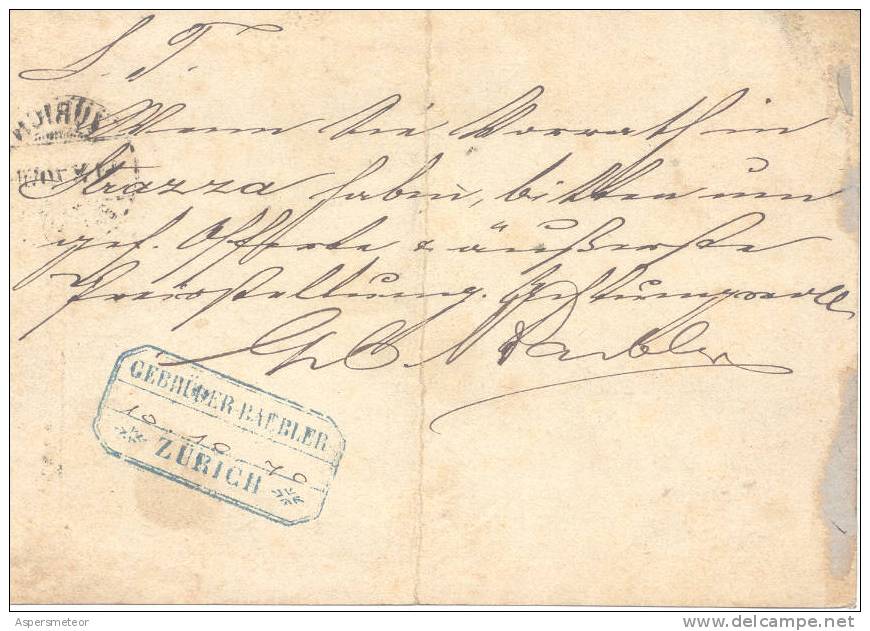 S. T.
Wenn Sie Vorrath in
Strazza haben, bitten um
gef. Offerte & äußerste
Preisstellung. Achtungsvoll
Gebr. Baebler
GEBRÜDER BAEBLER
10. 10. 70
ZÜRICH
ZÜRICH
Aspersmeteor
delcampe.net